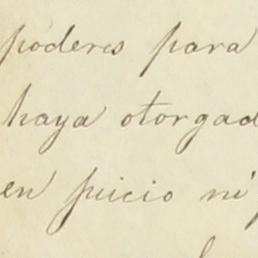 poderes para
haya otorgad
en juicio ni